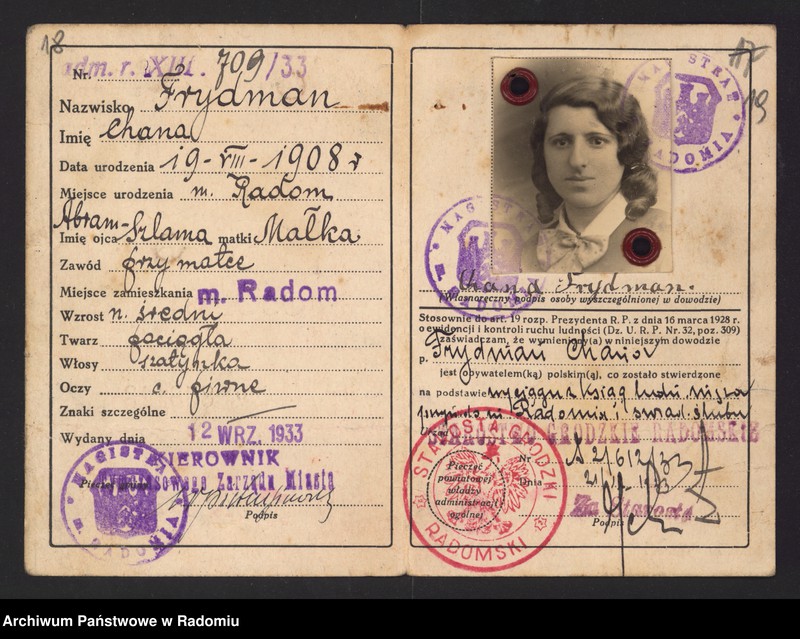 18
adm. r. XIII.
Nr. 709/33
Nazwisko Frydman
Imię Chana
Data urodzenia 19-VIII-1908 r
Miejsce urodzenia m. Radom
Abram-
Imię ojca Szlama matki Małka
Zawód przy matce
Miejsce zamieszkania m. Radom
Wzrost n. średni
Twarz pociągła
Włosy szatynka
Oczy c. piwne
Znaki szczególne
Wydany dnia 12 WRZ. 1933
KIEROWNIK
Tymczasowego Zarządu Miasta
Podpis
MAGISTRAT
m. RADOMIA
19
MAGISTRAT
m. RADOMIA
MAGISTRAT
m. RADOMIA
Chana Frydman.
(Własnoręczny podpis osoby wyszczególnionej w dowodzie)
Stosownie do art. 19 rozp. Prezydenta R. P. z dnia 16 marca 1928 r.
o ewidencji i kontroli ruchu ludności (Dz. U. R. P. Nr. 32, poz. 309)
zaświadczam, że wymieniony(a) w niniejszym dowodzie
p. Frydman Chana
jest obywatelem(ką) polskim(ą), co zostało stwierdzone
na podstawie wyciągu z ksiąg ludn.
m. Radomia i świad. ślubu
STAROSTWO GRODZKIE RADOMSKIE
Nr
Dnia
STAROSTA GRODZKI
RADOMSKI
Pieczęć
powiatowej
władzy
administracji
ogólnej
Za Starostę
Podpis
Archiwum Państwowe w Radomiu